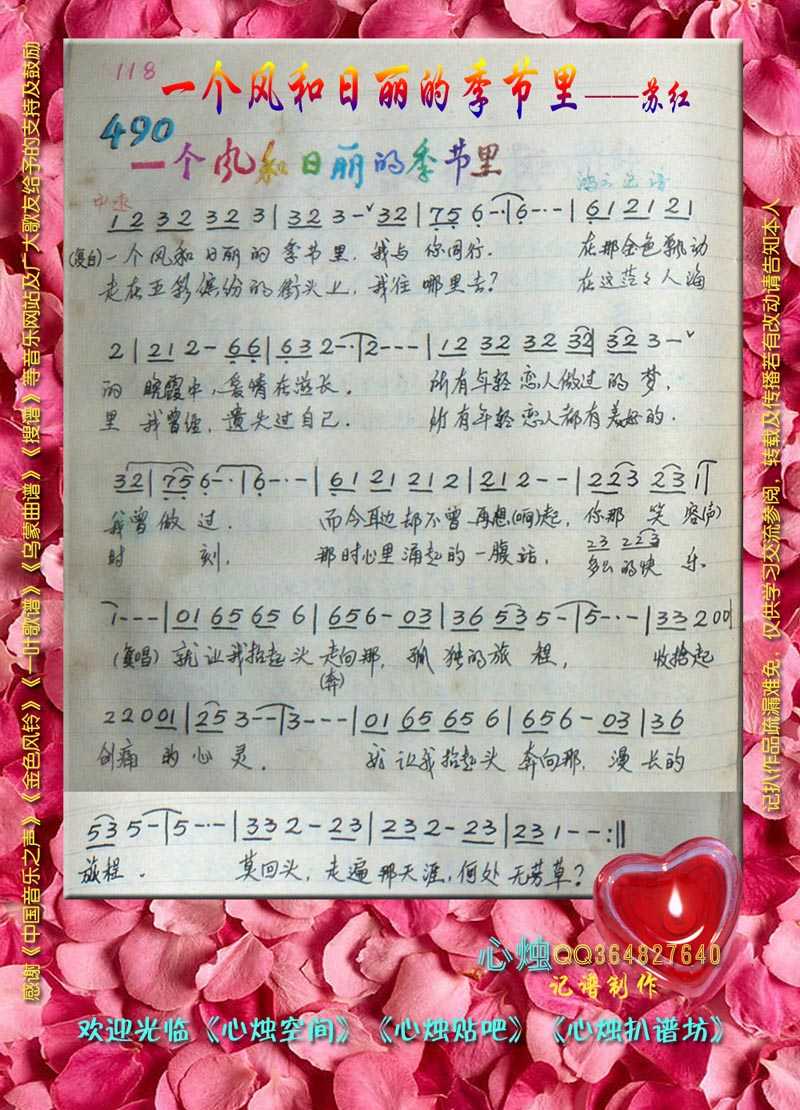 118
一个风和日丽的季节里——苏红
490
一个风和日丽的季节里
中速
1 2 3 2 3 2 3 | 3 2 3 - ∨ 3 2 | 7 5 6 - - | 6 - · - | 6 1 2 1 2 1
(复白) 一个风和日丽的季节里，我与你同行. 在那金色飘动
走在五彩缤纷的街头上，我往哪里去？ 在这茫々人海
2 | 2 1 2 - 6 6 | 6 3 2 - · | 2 - - - | 1 2 3 2 3 2 3 2 | 3 2 3 - ∨
的晚霞中，爱情在滋长. 所有年轻恋人做过的梦，
里我曾经，遗失过自己. 所有年轻恋人都有美好的.
3 2 | 7 5 6 - · - | 6 - · - | 6 1 2 1 2 1 2 | 2 1 2 - - | 2 2 3 2 3 1 |
我曾做过. 而今耳边却不曾再想(响)起，你那笑容(声)
2 3 2 2 3
时刻， 那时心里涌起的一腹话， 多么的快乐.
1 - - - | 0 1 6 5 6 5 6 | 6 5 6 - 0 3 | 3 6 5 3 5 - | 5 - · - | 3 3 2 0 0 |
(复唱) 就让我抬起头走向那，孤独的旅程， 收拾起
(奔)
2 2 0 0 1 | 2 5 3 - - | 3 - - - | 0 1 6 5 6 5 6 | 6 5 6 - 0 3 | 3 6
创痛的心灵. 就让我抬起头奔向那，漫长的
5 3 5 - | 5 - · - | 3 3 2 - 2 3 | 2 3 2 - 2 3 | 2 3 1 - - :||
旅程. 莫回头，走遍那天涯，何处无芳草？
心烛QQ364827640
记谱制作
欢迎光临《心烛空间》《心烛贴吧》《心烛扒谱坊》
感谢《中国音乐之声》《金色风铃》《一叶歌谱》《乌蒙曲谱》《搜谱》等音乐网站及广大歌友给予的支持及鼓励
记扒作品疏漏难免，仅供学习交流参阅，转载及传播若有改动请告知本人